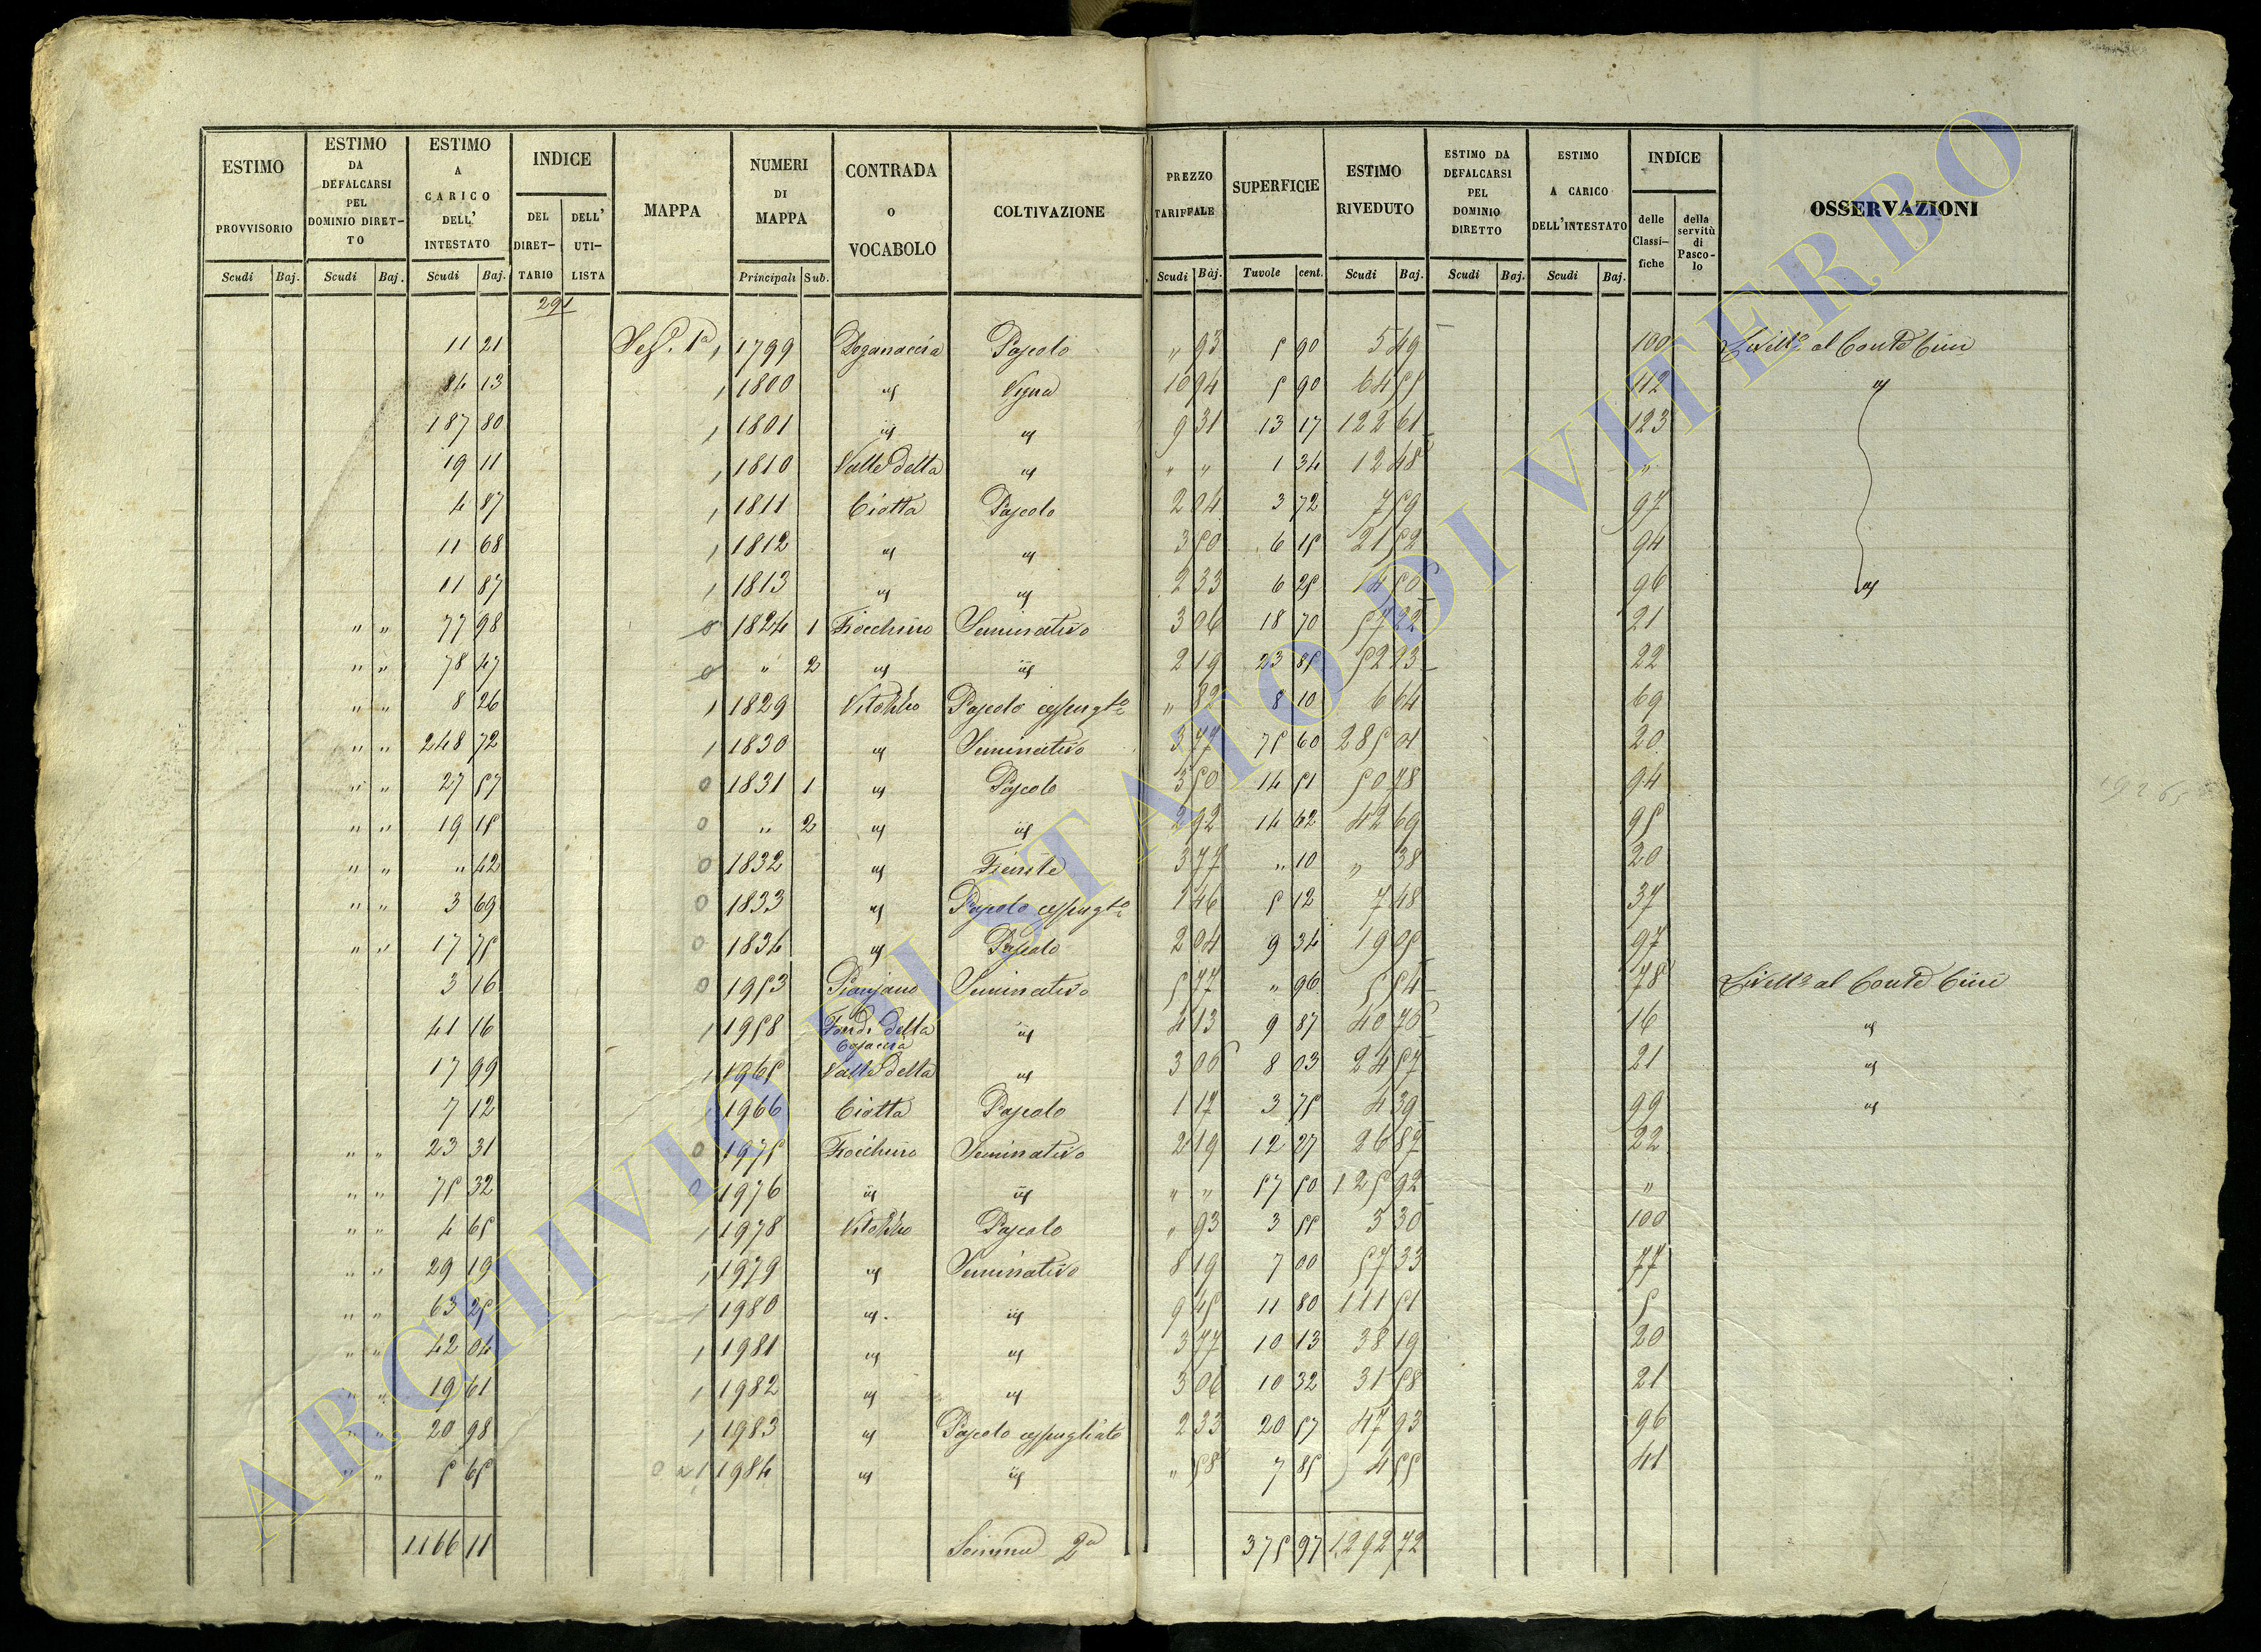 ESTIMO PROVVISORIO Scudi Baj.
ESTIMO DA DEFALCARSI PEL DOMINIO DIRET-TO Scudi Baj.
ESTIMO A CARICO DELL' INTESTATO Scudi Baj.
INDICE DEL DIRET-TARIO DELL' UTI-LISTA
MAPPA
NUMERI DI MAPPA Principali Sub.
CONTRADA O VOCABOLO
COLTIVAZIONE
PREZZO TARIFFALE Scudi Baj.
SUPERFICIE Tavole cent.
ESTIMO RIVEDUTO Scudi Baj.
ESTIMO DA DEFALCARSI PEL DOMINIO DIRETTO Scudi Baj.
ESTIMO A CARICO DELL'INTESTATO Scudi Baj.
INDICE delle Classi-fiche della servitù di Pasco-lo
OSSERVAZIONI
291
11 21 1799 Doganaccia Pascolo " 93 5 90 5 49 100
84 13 1800 " Vigna 10 94 5 90 64 55 112 "
187 80 1801 " " 9 31 13 17 122 61 123
19 11 1810 Valle della " " " 1 34 12 48 "
4 87 1811 Ciotta Pascolo 2 04 3 72 7 59 97
11 68 1812 " " 3 50 6 15 21 52 94
11 87 1813 " " 2 33 6 25 14 50 96 "
" " 77 98 0 1824 1 Fiocchino Seminativo 3 06 18 70 57 22 21
" " 78 47 0 " 2 " " 2 19 23 85 52 23 22
" " 8 26 1829 Pascolo cespugto " 82 8 10 6 64 69
" " 248 72 1830 " Seminativo 3 77 75 60 285 01 20
" " 27 57 0 1831 1 " Pascolo 3 50 14 51 50 78 94
" " 19 15 0 " 2 " " 2 92 14 62 42 69 95
" " " 42 0 1832 " Fienile 3 77 " 10 " 38 20
" " 3 69 0 1833 " Pascolo cespugto 1 46 5 12 7 48 37
" " 17 75 0 1834 " Pascolo 2 04 9 34 19 05 97
3 16 0 1953 Pianjano Seminativo 5 77 " 96 5 54 78
41 16 1958 Fondi della " 4 13 9 87 40 76 16 "
17 99 1965 Valle della " 3 06 8 03 24 57 21 "
7 12 1966 Ciotta Pascolo 1 17 3 75 4 39 99 "
" " 23 31 0 1975 Fiocchino Seminativo 2 19 12 27 26 87 22
" " 75 32 0 1976 " " " " 57 50 125 92 "
" " 4 65 1978 Pascolo " 93 3 55 3 30 100
" " 29 19 1979 " Seminativo 8 19 7 00 57 33 77
" " 63 25 1980 " " 9 45 11 80 111 51 5
" " 42 04 1981 " " 3 77 10 13 38 19 20
" " 19 61 1982 " " 3 06 10 32 31 58 21
" " 20 98 1983 " Pascolo cespugliato 2 33 20 57 47 93 96
" " 5 65 1984 " " " 58 7 85 4 55 41
1166 11 Somma 2a 375 97 1292 72
ARCHIVIO DI STATO DI VITERBO